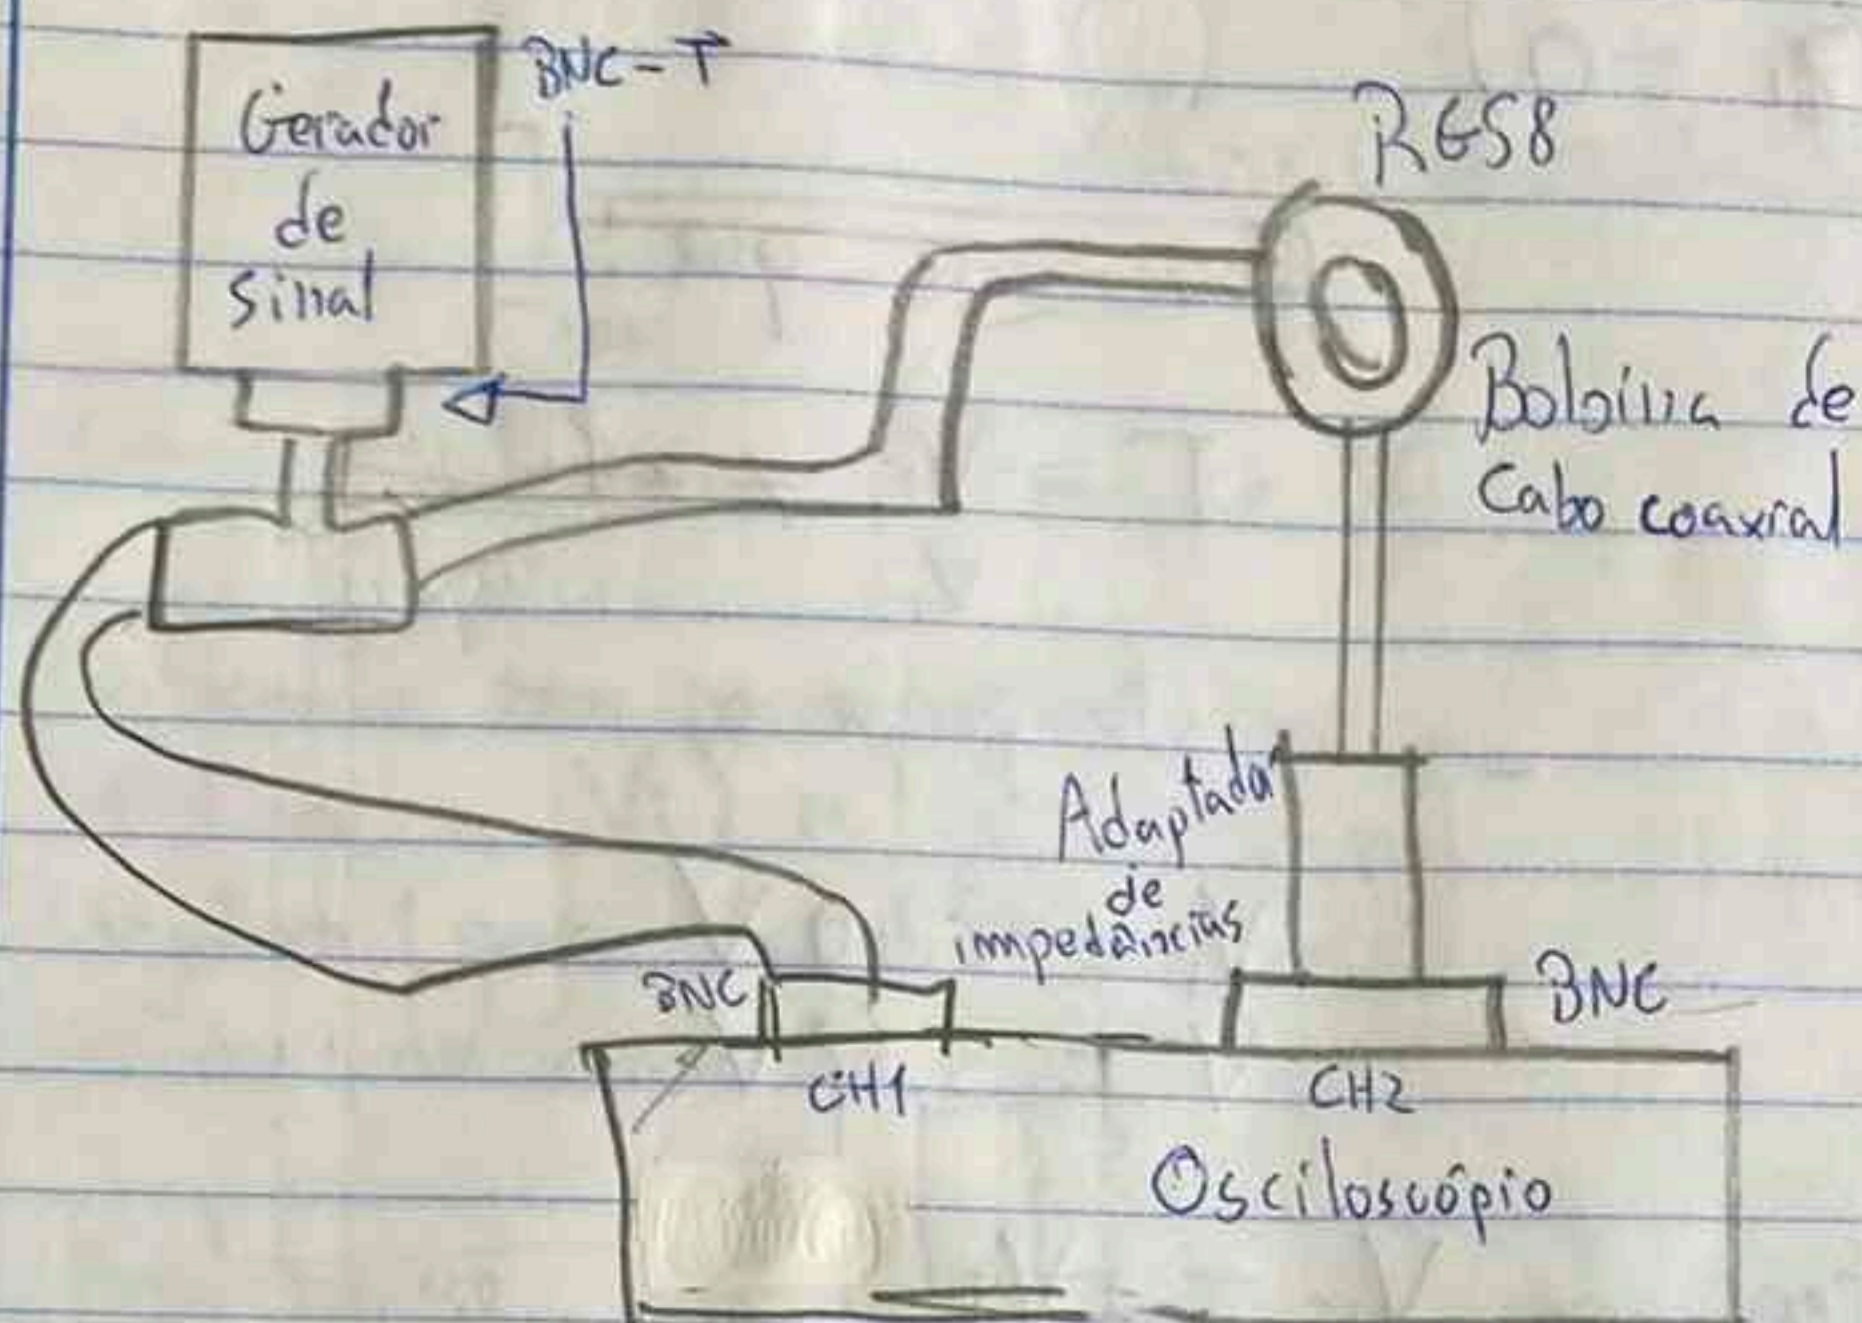 Gerador
de
sinal
BNC-T
RG58
Bobina de
Cabo coaxial
Adaptador
de
impedâncias
BNC
BNC
CH1
CH2
Osciloscópio